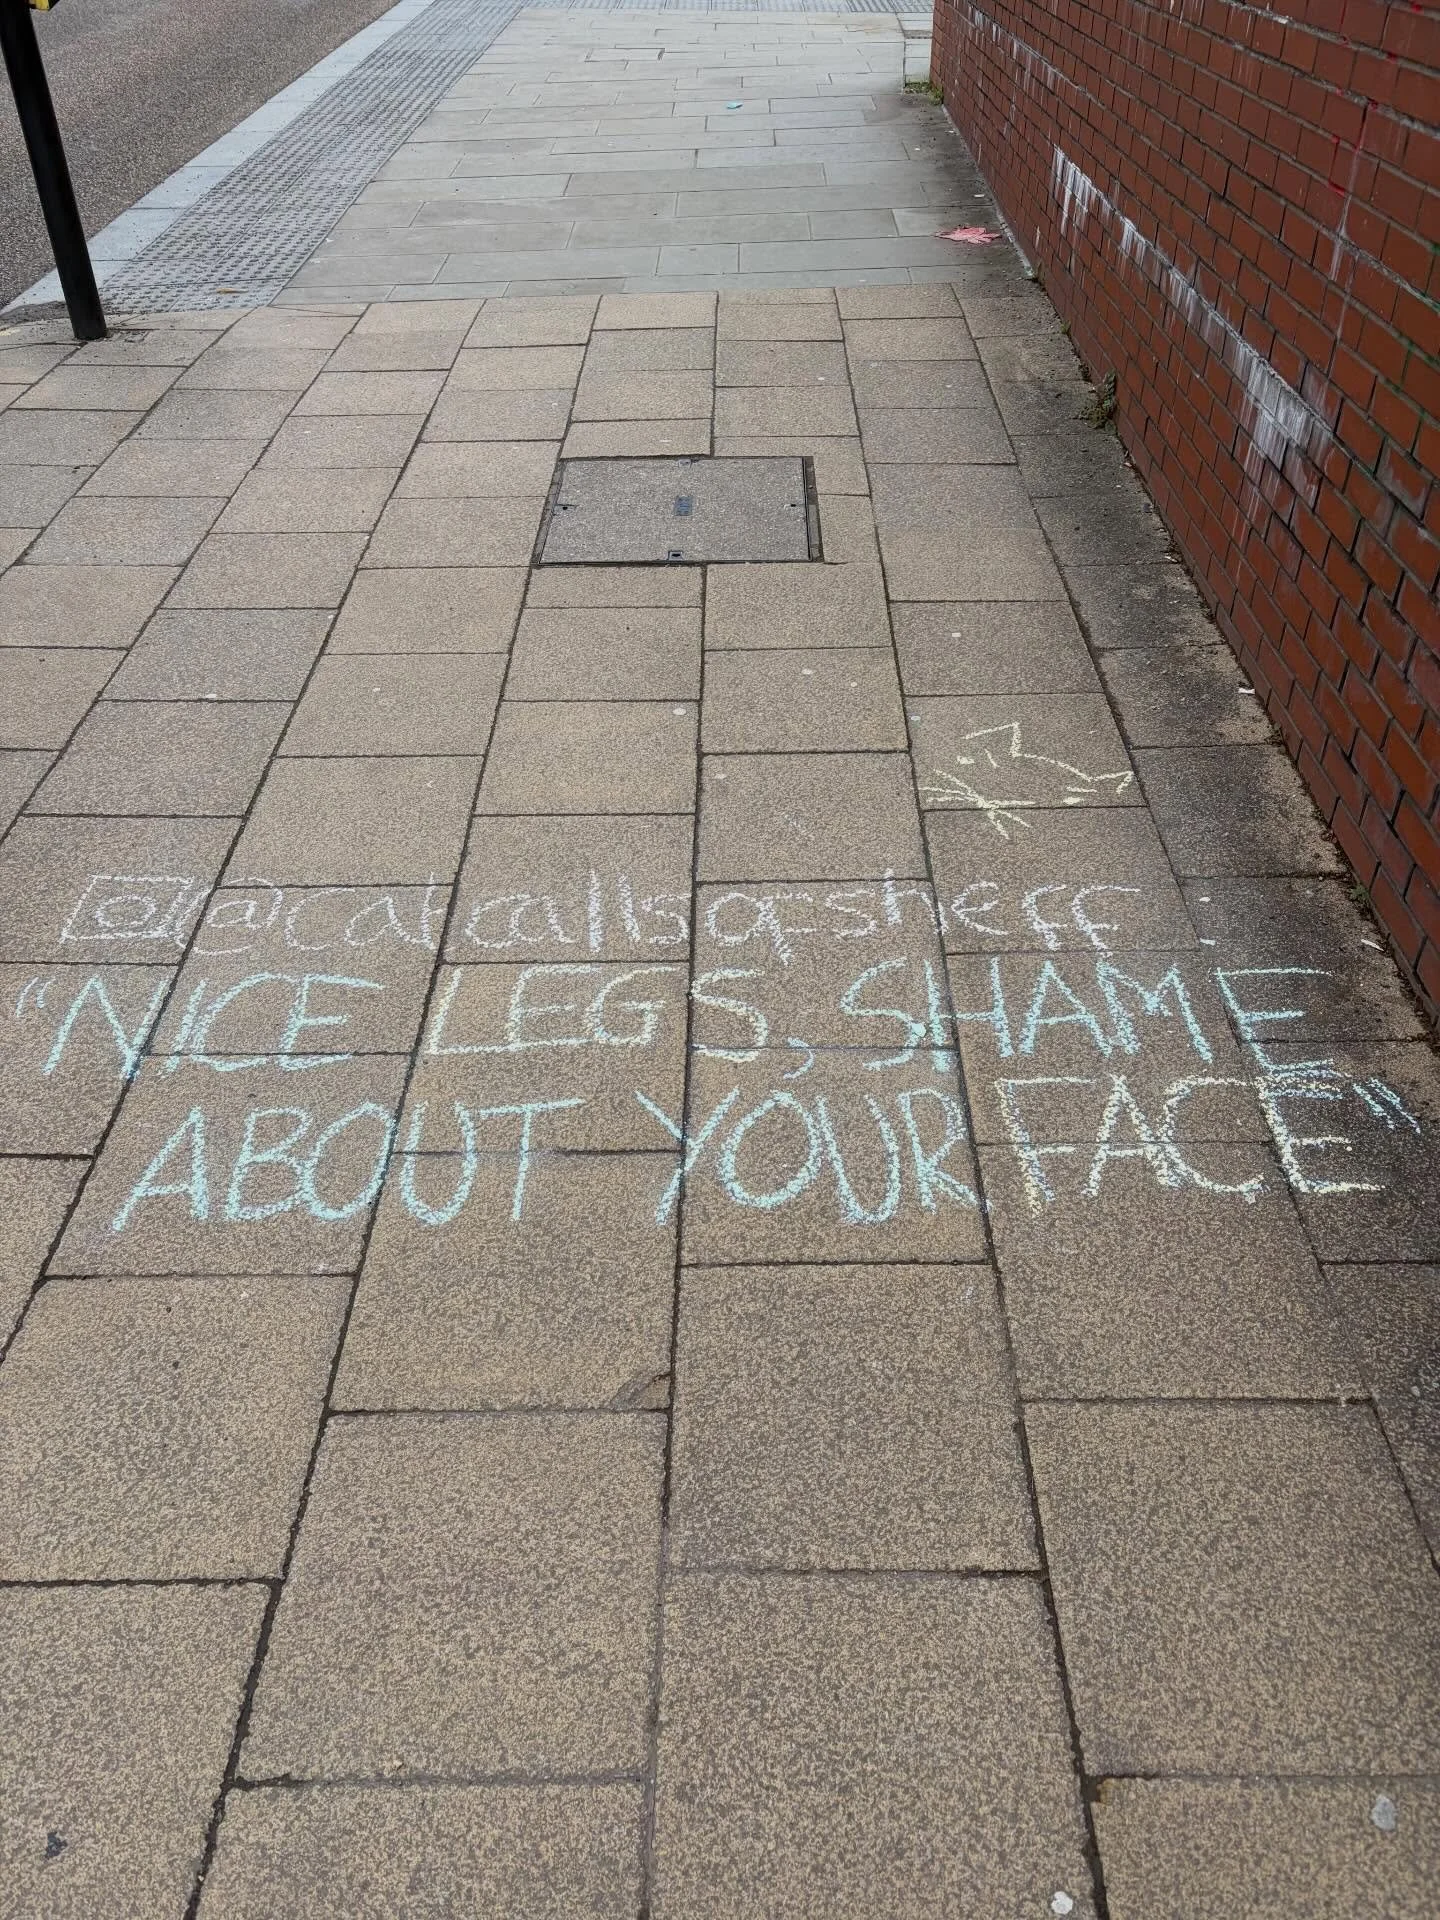 @catcallsofsheff
"NICE LEGS, SHAME
ABOUT YOUR FACE"